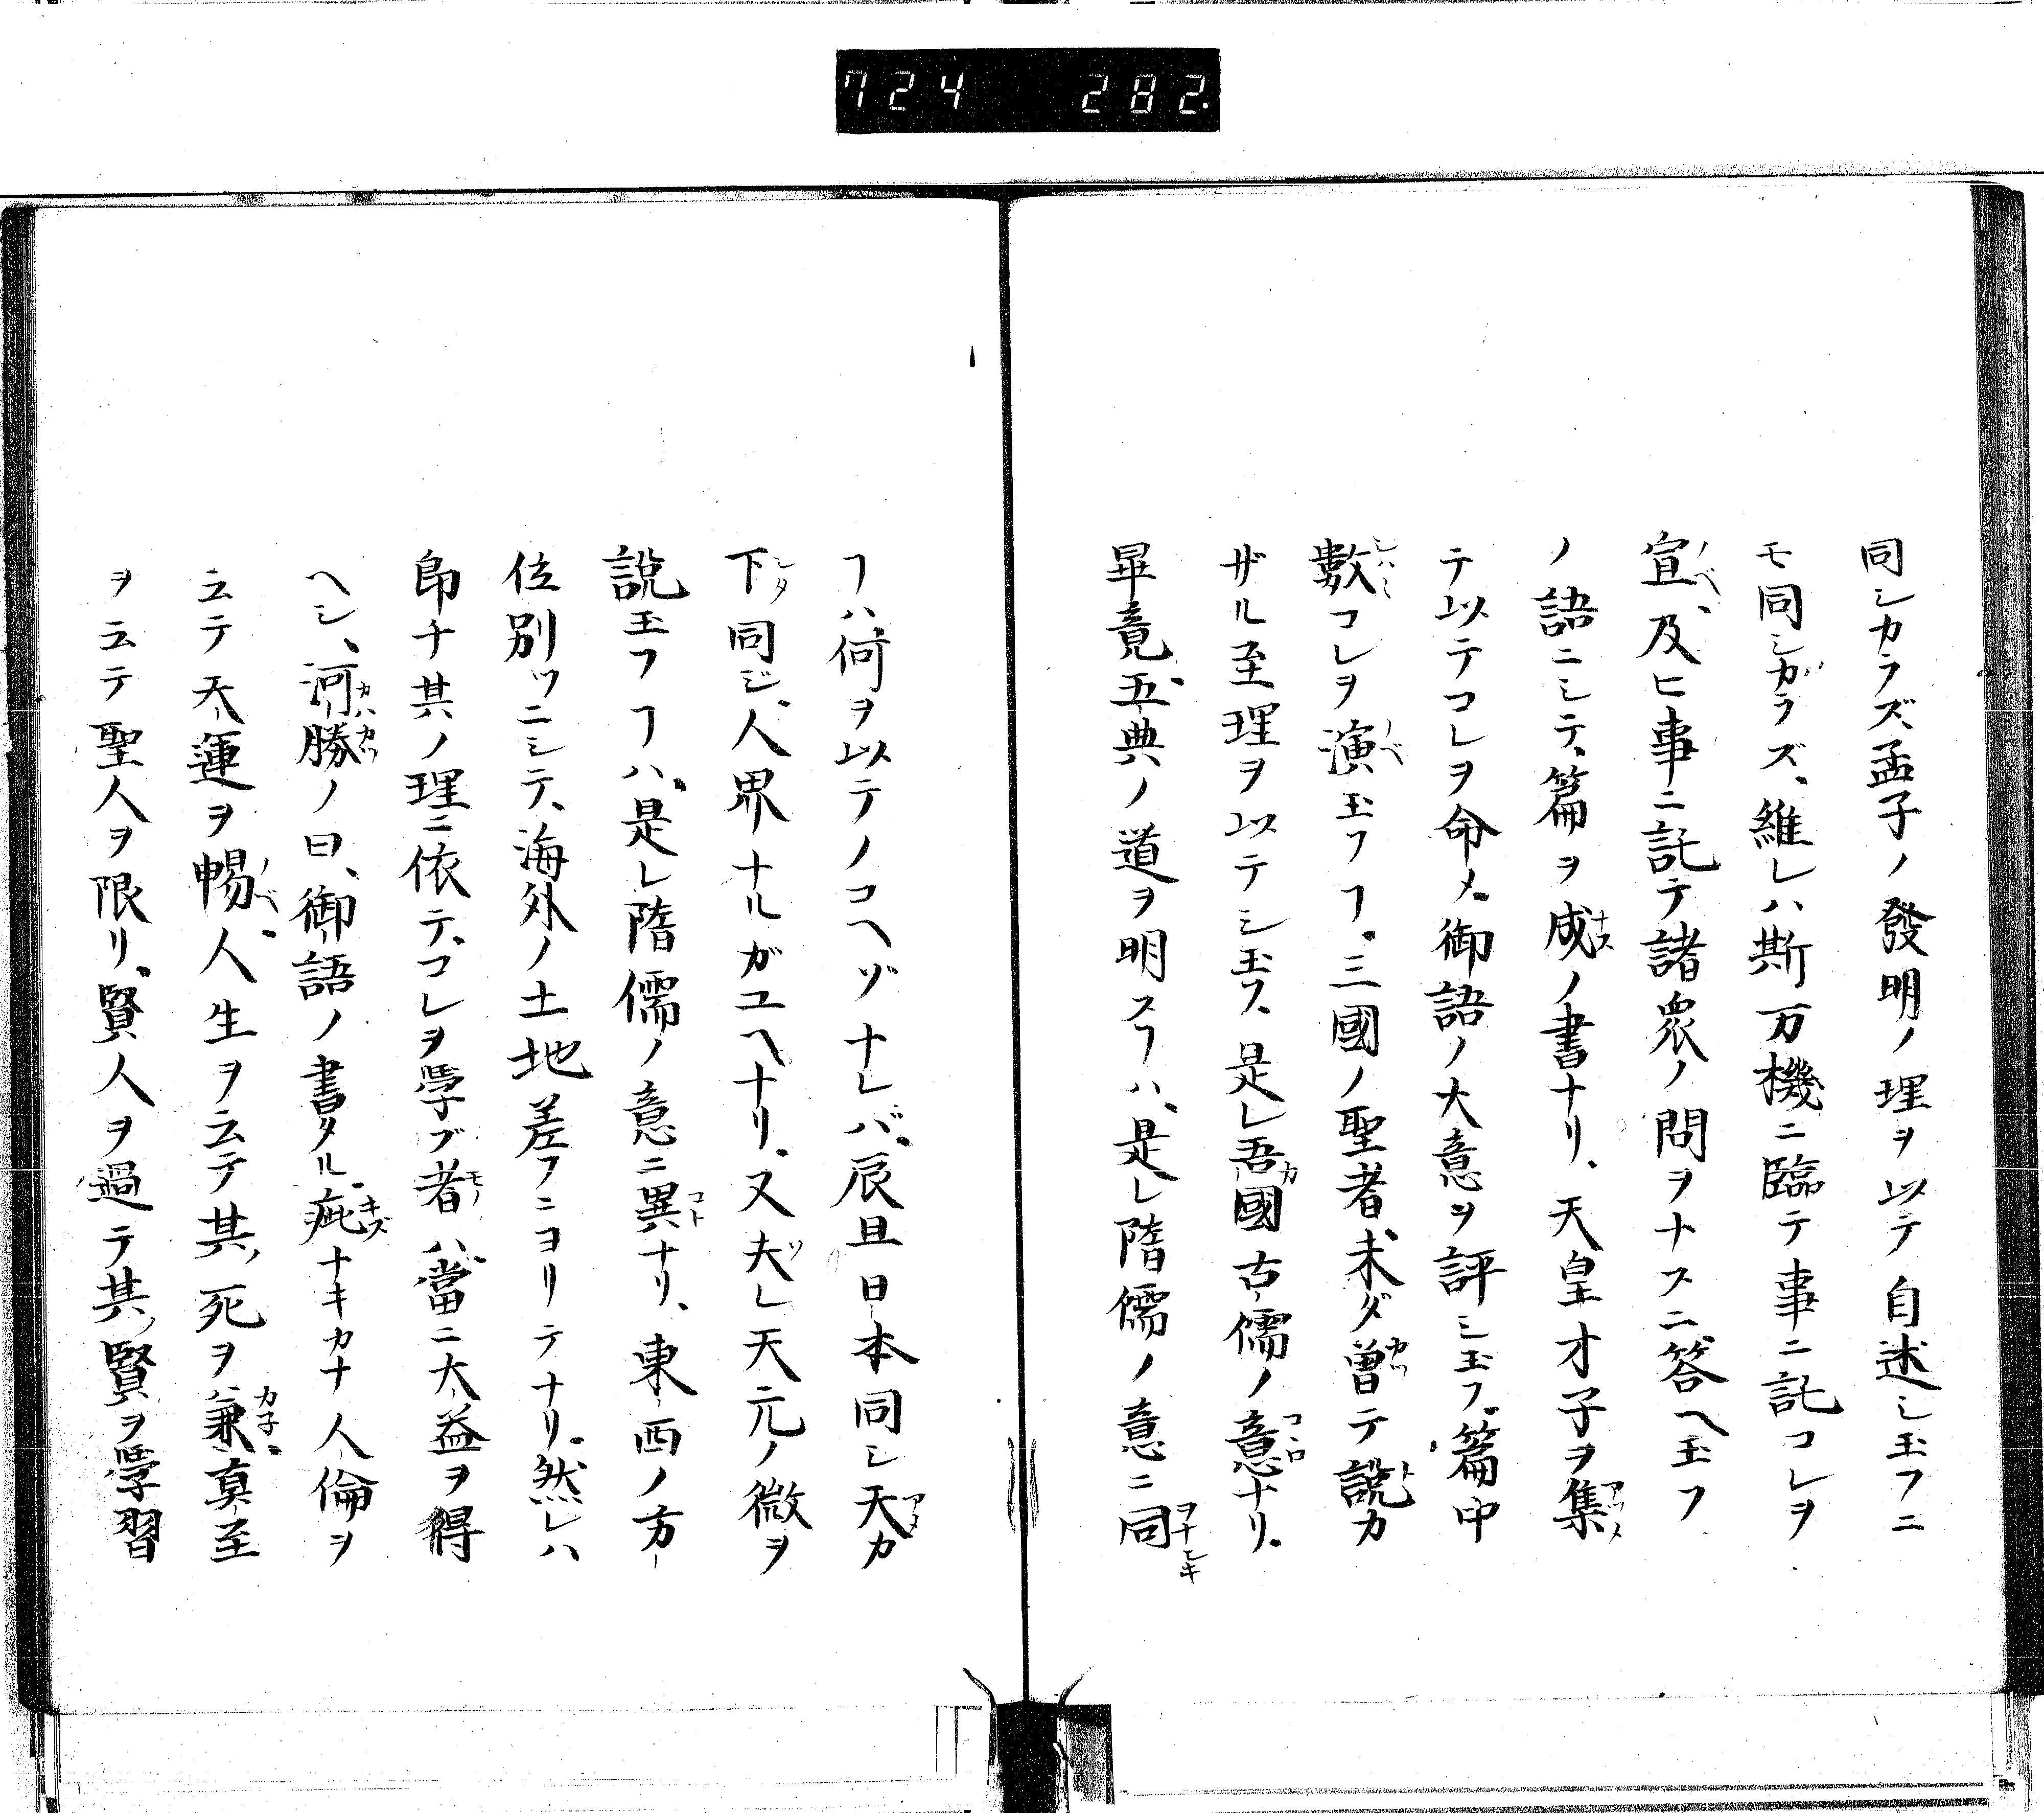 724 282.
同シカラズ、孟子ノ發明ノ理ヲ以テ自述シ玉フニ
モ同シカラズ、維レハ斯万機ニ臨テ事ニ託コレヲ
宣、及ヒ事ニ託テ諸衆ノ問ヲナスニ答ヘ玉フ
ノ語ニシテ、篇ヲ成ノ書ナリ、天皇才子ヲ集
テ以テコレヲ命メ、御語ノ大意ヲ評シ玉フ、篇中
數コレヲ演玉フヿ、三國ノ聖者未ダ曽テ説カ
ザル至理ヲ以テシ玉フ、是レ吾國古儒ノ意ナリ、
畢竟五典ノ道ヲ明スヿハ、是レ隋儒ノ意ニ同
ヿハ、何ヲ以テノユヘゾナレバ、辰旦日本同シ天カ
下同ジ、人界ナルガユヘナリ、又夫レ天元ノ微ヲ
説玉フヿハ、是レ隋儒ノ意ニ異ナリ、東西ノ方
位別ツニシテ、海外ノ土地差フニヨリテナリ、然レハ
即チ其ノ理ニ依テ、コレヲ學ブ者ハ、當ニ大益ヲ得
ヘシ、河勝ノ曰、御語ノ書タル、疵ナキカナ人倫ヲ
云テ天運ヲ暢、人生ヲ云テ其ノ死ヲ兼、真至
ヲ云テ聖人ヲ限リ、賢人ヲ過テ其ノ賢ヲ學習